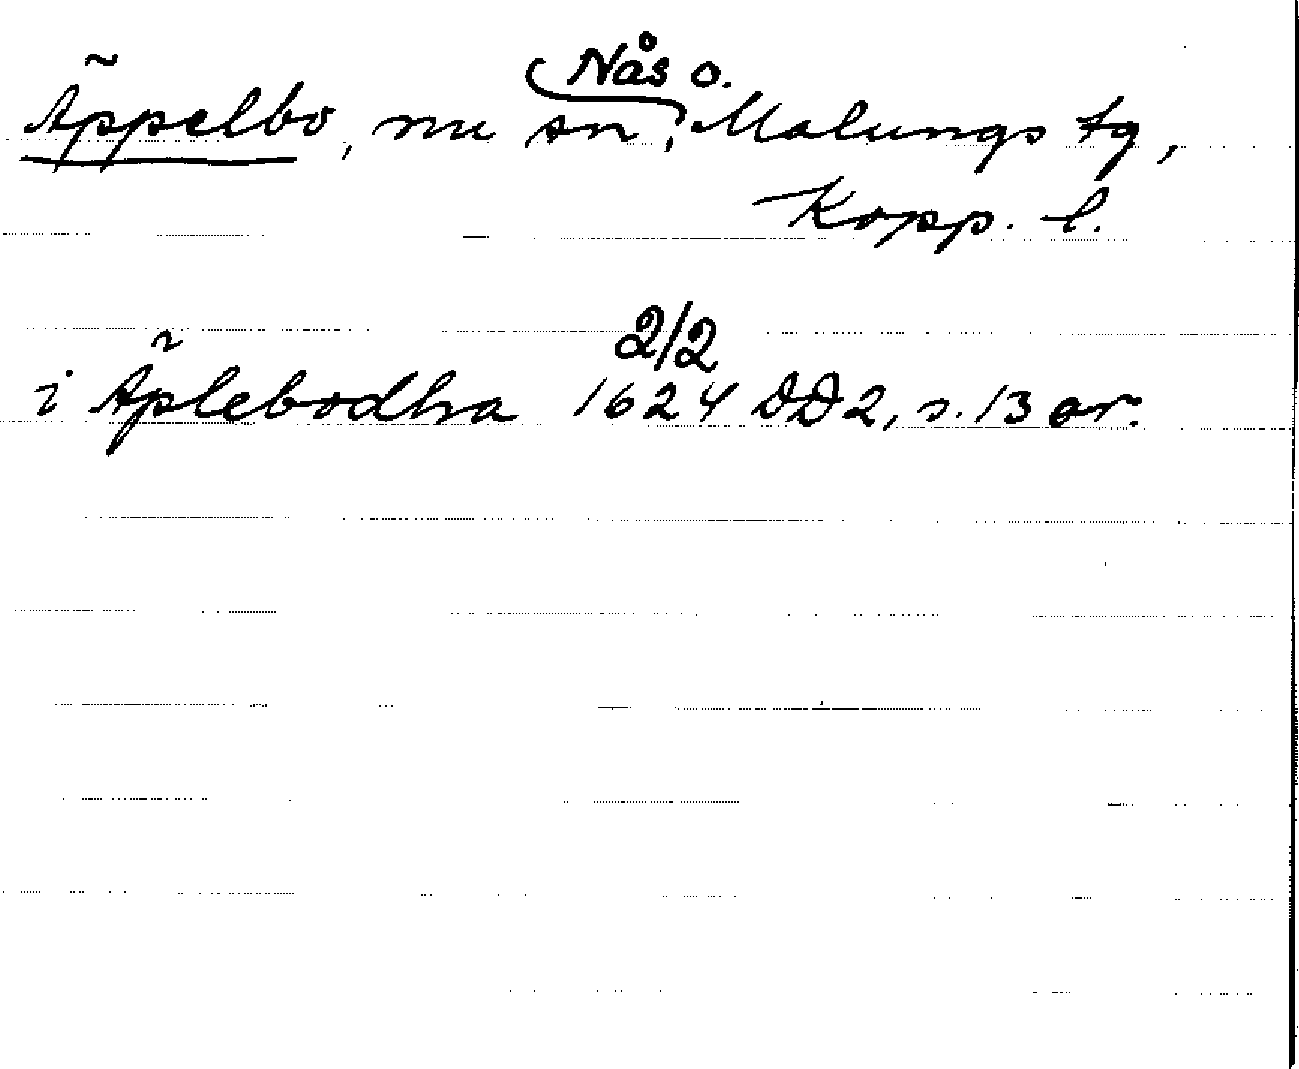 Nås o.
Äppelbo, nu sn, Malungs tg,
Kopp. l.
2/2
i Äplebodha 1624 DD2, s. 13 or.